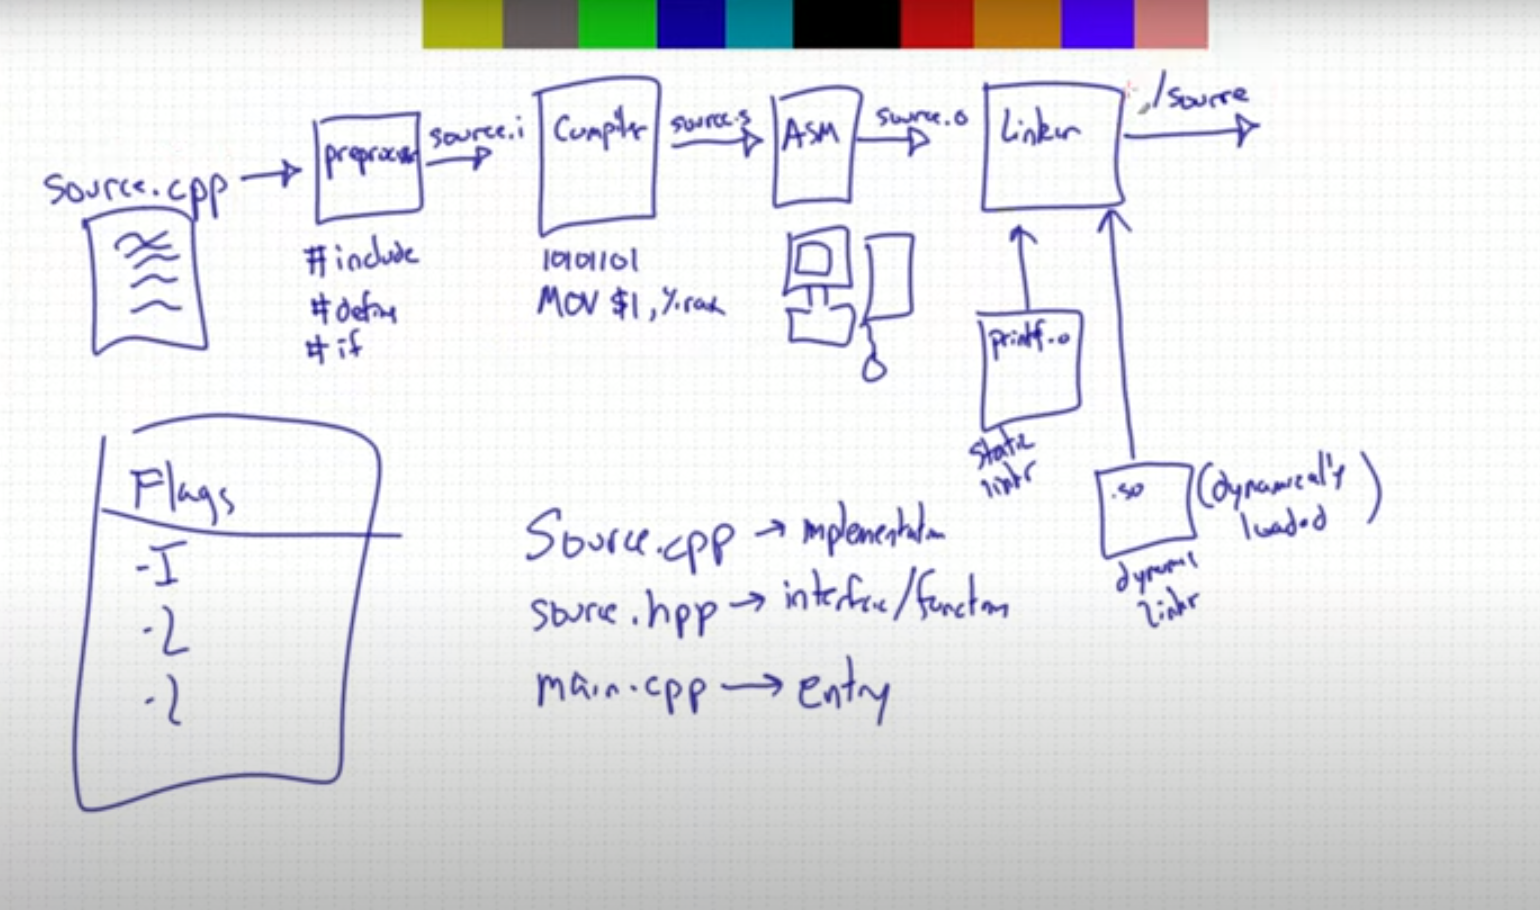 source.cpp
preprocessor
source.i
Compiler
source.s
ASM
source.o
Linker
./source
#include
#define
#if
10101101
MOV $1, %rax
printf.o
static
linkr
.so
(dynamically
loaded)
dynamic
linkr
Flags
-I
-L
-l
Source.cpp → implementation
source.hpp → interface/function
main.cpp → entry